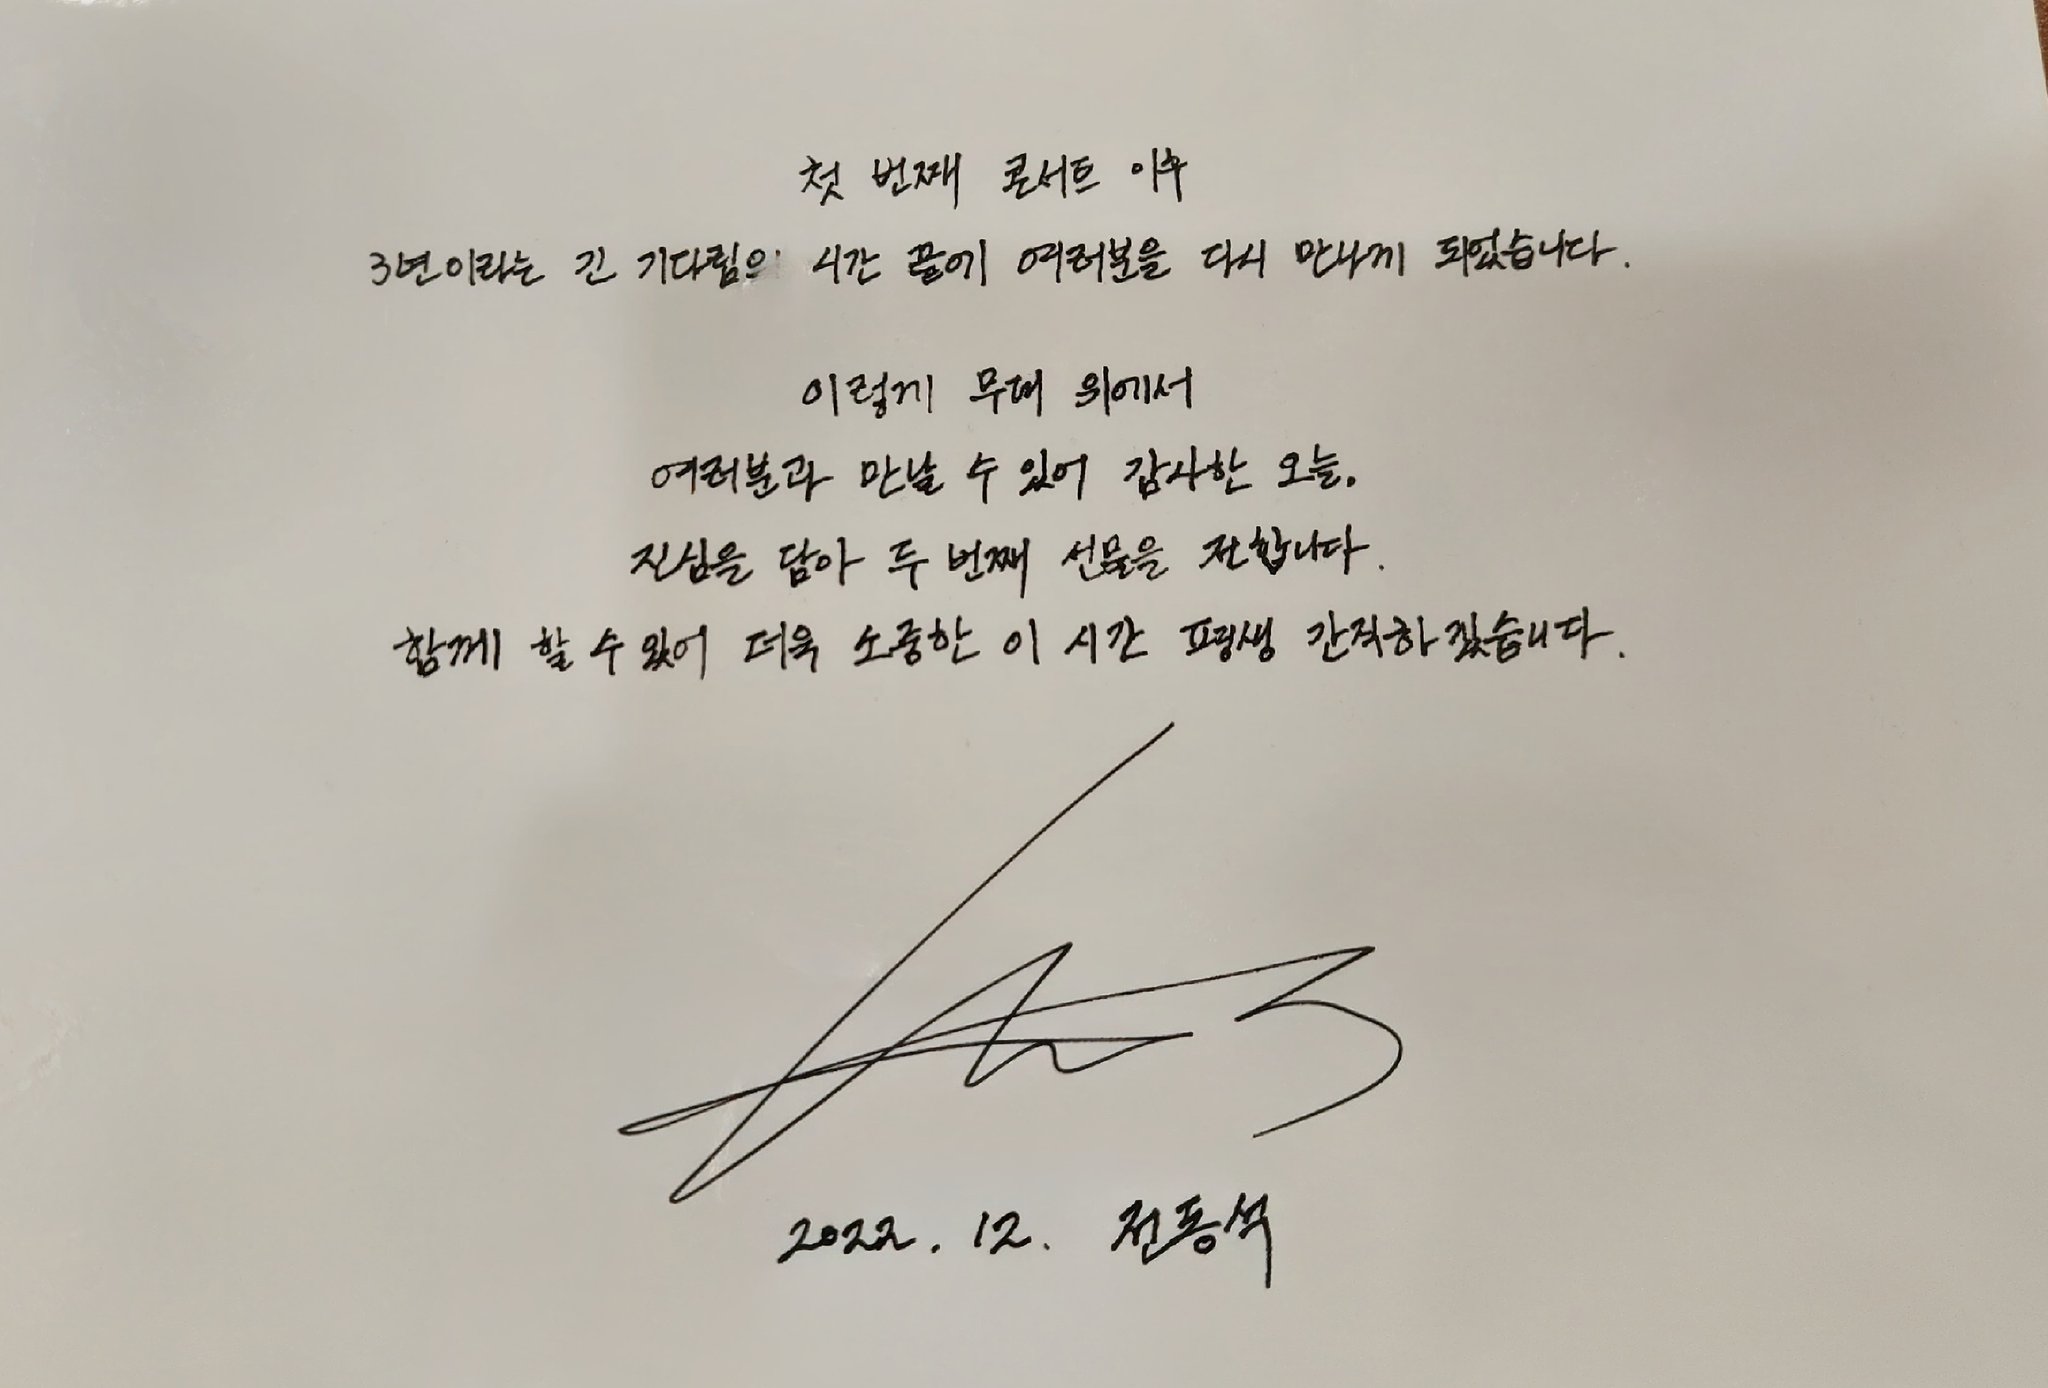 첫 번째 콘서트 이후
3년이라는 긴 기다림의 시간 끝에 여러분을 다시 만나게 되었습니다.
이렇게 무대 위에서
여러분과 만날 수 있어 감사한 오늘.
진심을 담아 두 번째 선물을 전합니다.
함께 할 수 있어 더욱 소중한 이 시간 평생 간직하겠습니다.
2022. 12. 전동석